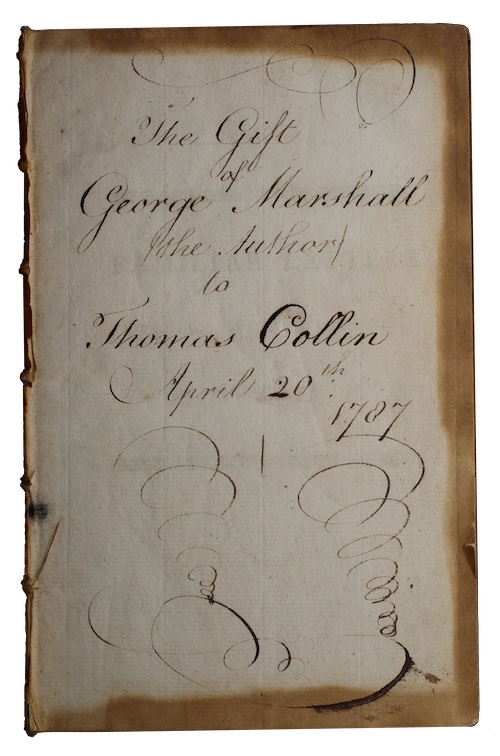 The Gift
of
George Marshall
(the Author)
to
Thomas Collin
April 20th
1787